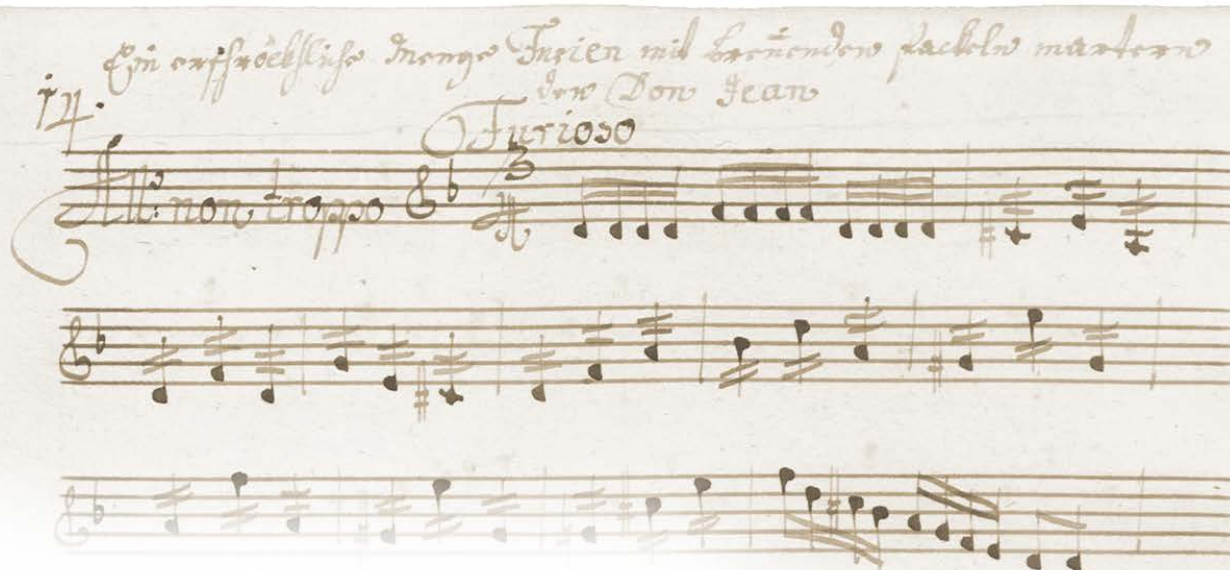 Ein erschröckliche Menge Furien mit breñenden fackeln martern
den Don Jean
14.
Furioso
All: non troppo
3
4